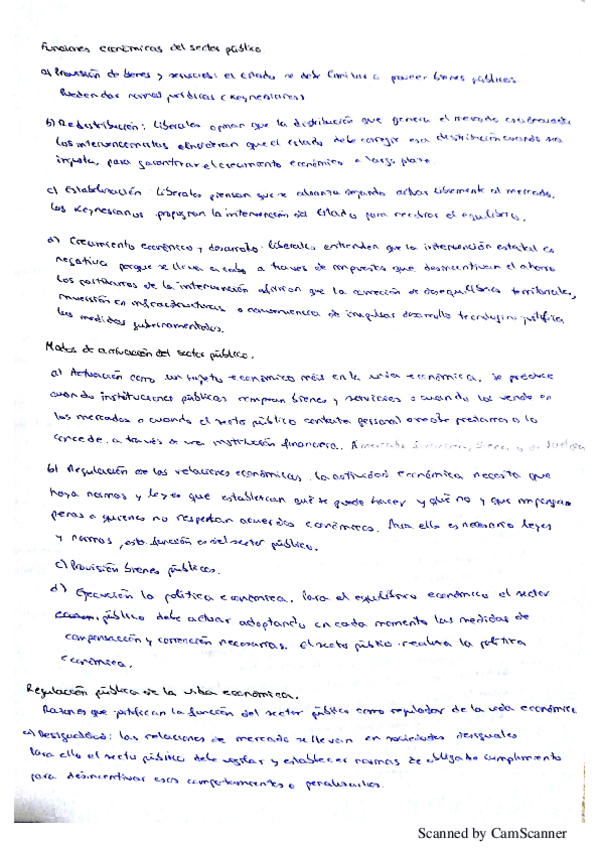 Funciones económicas del sector público
a) Provisión de bienes y servicios: el estado se debe limitar a proveer bienes públicos
Pueden dar normas jurídicas (Keynesianos)
b) Redistribución: Liberales opinan que la distribución que genera el mercado es
Los intervencionistas el estado debe corregir esa distribución cuando sea
injusta, para garantizar el crecimiento económico a largo plazo.
c) Estabilización: Liberales piensan que se alcanza dejando actuar libremente al mercado.
Los Keynesianos propugnan la intervención del Estado para recobrar el equilibrio.
d) Crecimiento económico y desarrollo: Liberales entienden que la intervención estatal es
negativa porque se lleva a cabo a través de impuestos que desincentivan el ahorro
Los partidarios de la intervención afirman que la corrección de desequilibrios territoriales,
inversión en infraestructuras o conveniencia de impulsar desarrollo tecnológico justifica
las medidas gubernamentales.
Modos de actuación del sector público.
a) Actuación como un sujeto económico más en la vida económica. Se produce
cuando instituciones públicas compran bienes y servicios o cuando los vende en
los mercados o cuando el sector público contrata personal o recibe préstamos o lo
concede a través de una institución financiera.
b) Regulación de las relaciones económicas. La actividad económica necesita que
haya normas y leyes que establezcan qué se puede hacer y qué no y que impongan
penas a quienes no respetan acuerdos económicos. Para ello es necesario leyes
y normas, esta función es del sector público.
c) Provisión bienes públicos.
d) Ejecución la política económica. Para el equilibrio económico el sector
público debe actuar adoptando en cada momento las medidas de
compensación y corrección necesarias. El sector público realiza la política
económica.
Regulación pública de la vida económica.
Razones que justifican la función del sector público como regulador de la vida económica
a) Desigualdad: las relaciones de mercado se llevan en sociedades desiguales
Para ello el sector público debe vigilar y establecer normas de obligado cumplimiento
para desincentivar esos comportamientos o penalizarlos.
Scanned by CamScanner